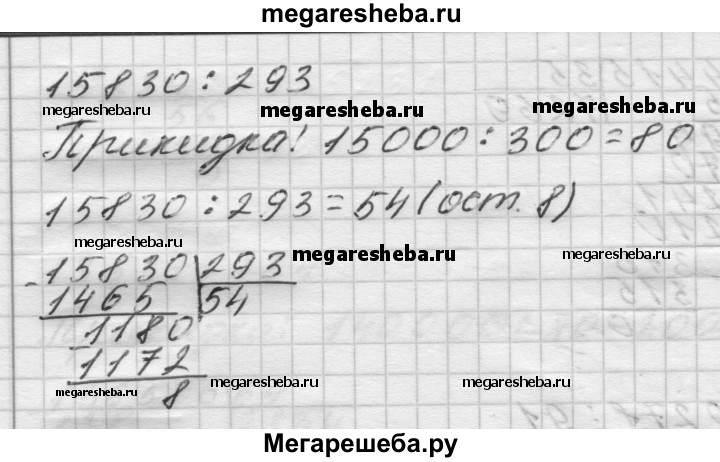 megaresheba.ru
15830 : 293
megaresheba.ru megaresheba.ru megaresheba.ru
Прикидка! 15000 : 300 = 80
15830 : 293 = 54 (ост. 8)
megaresheba.ru megaresheba.ru megaresheba.ru
- 15830 | 293
1465 | 54
1180
1172
megaresheba.ru megaresheba.ru megaresheba.ru
8
Мегарешеба.ру